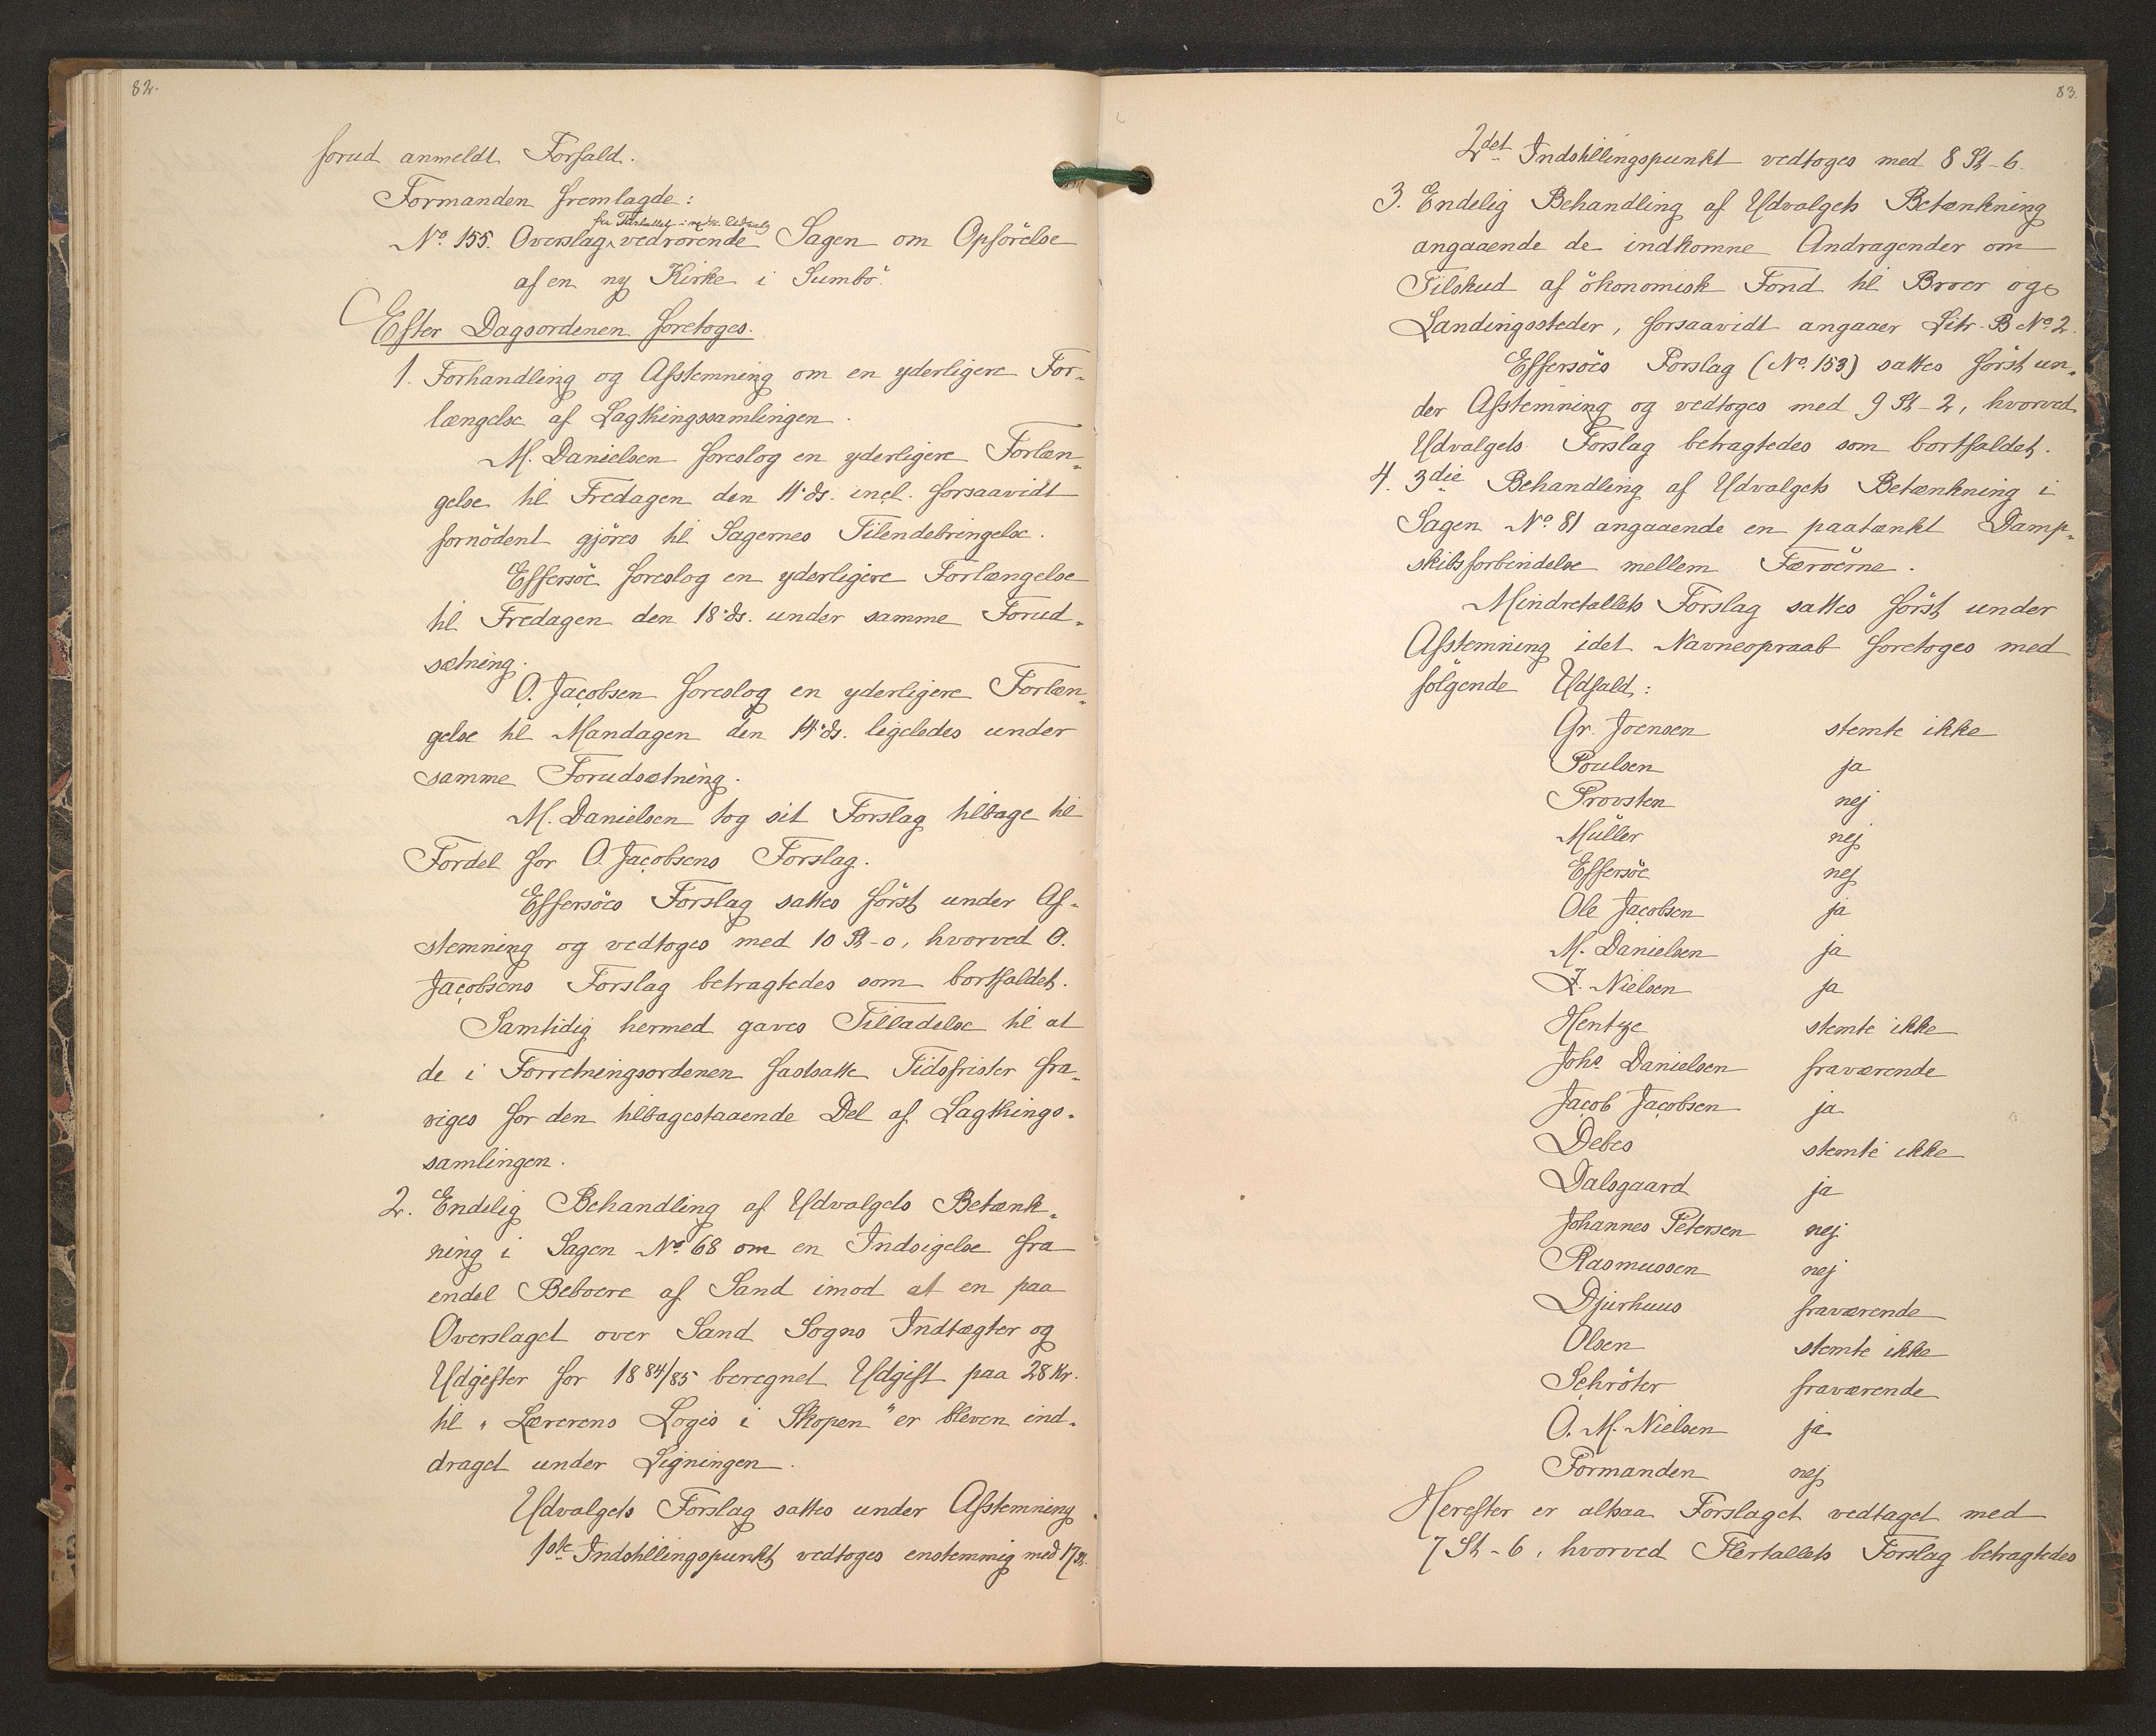 82.
forud anmeldt Forfald.
Formanden fremlagde:
fra Flertallet i
No. 155. Overslag vedrörende Sagen om Opförelse
af en ny Kirke i Sumbö.
Efter Dagsordenen foretoges.
1. Forhandling og Afstemning om en yderligere For-
længelse af Lagthingssamlingen.
M. Danielsen foreslog en yderligere Forlæn-
gelse til Fredagen den 11' ds. incl. forsaavidt
fornödent gjöres til Sagernes Tilendebringelse.
Effersöe foreslog en yderligere Forlængelse
til Fredagen den 18' ds. under samme Forud-
sætning.
O. Jacobsen foreslog en yderligere Forlæn-
gelse til Mandagen den 14' ds. ligeledes under
samme Forudsætning.
M. Danielsen tog sit Forslag tilbage til
Fordel for O. Jacobsens Forslag.
Effersöes Forslag sattes först under Af-
stemning og vedtoges med 10 St-0, hvorved O.
Jacobsens Forslag betragtedes som bortfaldet.
Samtidig hermed gaves Tilladelse til at
de i Forretningsordenen fastsatte Tidsfrister fra-
viges for den tilbagestaaende Del af Lagthings-
samlingen.
2. Endelig Behandling af Udvalgets Betænk-
ning i Sagen No. 68 om en Indsigelse fra
endel Beboere af Sand imod at en paa
Overslaget over Sand Sogns Indtægter og
Udgifter for 1884/85 beregnet Udgift paa 28 Kr.
til "Lærerens Logis i Skopen" er bleven ind-
draget under Ligningen.
Udvalgets Forslag sattes under Afstemning.
1ste Indstillingspunkt vedtoges enstemmig med 17 St.
83.
2det Indstillingspunkt vedtoges med 8 St-6.
3. Endelig Behandling af Udvalgets Betænkning
angaaende de indkomne Andragender om
Tilskud af ökonomisk Fond til Broer og
Landingssteder, forsaavidt angaaer Litr. B No. 2.
Effersöes Forslag (No. 153) sattes först un-
der Afstemning og vedtoges med 9 St-2, hvorved
Udvalgets Forslag betragtedes som bortfaldet.
4. 3die Behandling af Udvalgets Betænkning i
Sagen No. 81 angaaende en paatænkt Damp-
skibsforbindelse mellem Færöerne.
Mindretallets Forslag sattes först under
Afstemning idet Navneopraab foretoges med
fölgende Udfald:
Gr. Joensen stemte ikke
Poulsen ja
Provsten nej
Müller nej
Effersöe nej
Ole Jacobsen ja
M. Danielsen ja
J. Nielsen ja
Hentze stemte ikke
Johs. Danielsen fraværende
Jacob Jacobsen ja
Debes stemte ikke
Dalsgaard ja
Johannes Petersen nej
Rasmussen nej
Djurhuus fraværende
Olsen stemte ikke
Schröter fraværende
O. M. Nielsen ja
Formanden nej
Herefter er altsaa Forslaget vedtaget med
7 St-6, hvorved Flertallets Forslag betragtedes